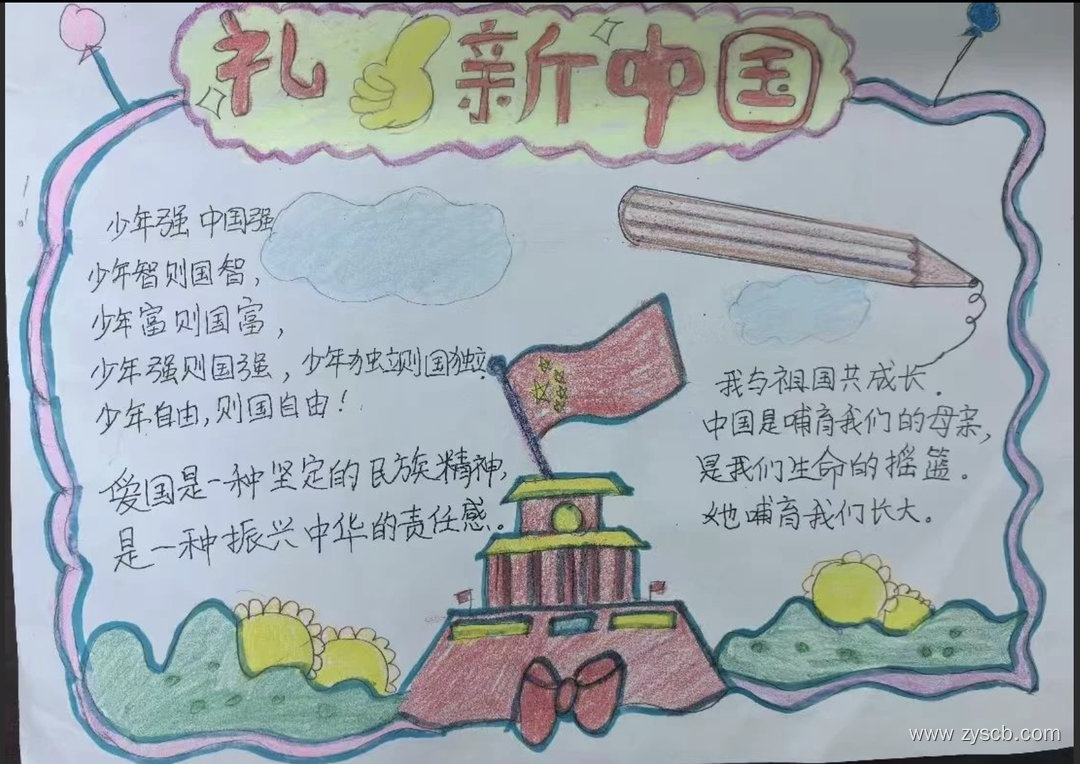 礼 新中国
少年强 中国强
少年智则国智，
少年富则国富，
少年强则国强，少年独立则国独立
少年自由，则国自由！
爱国是一种坚定的民族精神，
是一种振兴中华的责任感。
我与祖国共成长.
中国是哺育我们的母亲，
是我们生命的摇篮。
她哺育我们长大。
www.zyscb.com